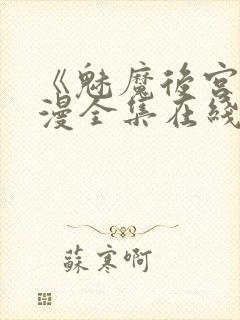 《魅魔後宮
漫全集在綫
蘇寒啊